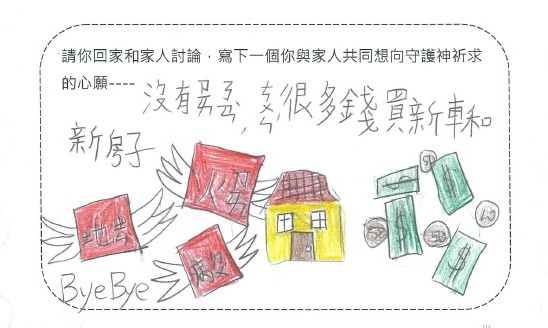 請你回家和家人討論，寫下一個你與家人共同想向守護神祈求
的心願----
沒有
很多錢買新車和
新房子
$
50
$
$
50
50
$
ByeBye